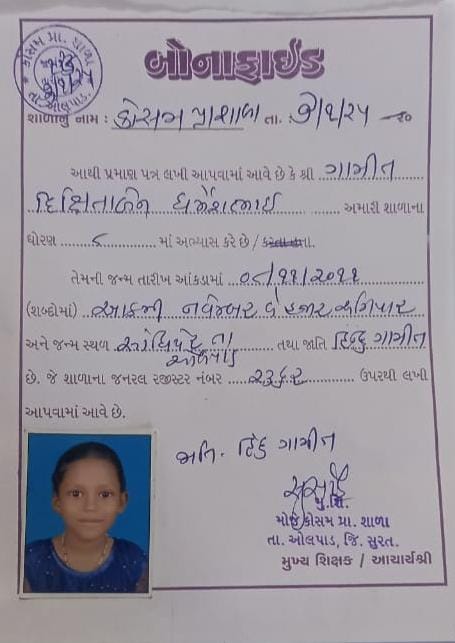 કોસમ પ્રા. શાળા
તા. ઓલપાડ.
બોનાફાઈડ
શાળાનું નામ : કોસમ પ્રા શાળા તા. : ૭/૧/૨૫ ૨૦
આથી પ્રમાણ પત્ર લખી આપવામાં આવે છે કે શ્રી ગામીત
દિક્ષિતાબેન ધર્મેશભાઈ અમારી શાળાના
ધોરણ ૮ માં અભ્યાસ કરે છે / કરતા હતા.
તેમની જન્મ તારીખ આંકડામાં ૦૮/૧૧/૨૦૧૧
(શબ્દોમાં) આઠમી નવેમ્બર બે હજાર અગિયાર
અને જન્મ સ્થળ તા ઓલપાડ તથા જાતિ હિન્દુ ગામીત
છે. જે શાળાના જનરલ રજીસ્ટર નંબર ૨૩૬૨ ઉપરથી લખી
આપવામાં આવે છે.
જાતિ - હિંદુ ગામીત
મુ.શિ.
મોજે કોસમ પ્રા. શાળા
તા. ઓલપાડ, જિ. સુરત.
મુખ્ય શિક્ષક / આચાર્યશ્રી